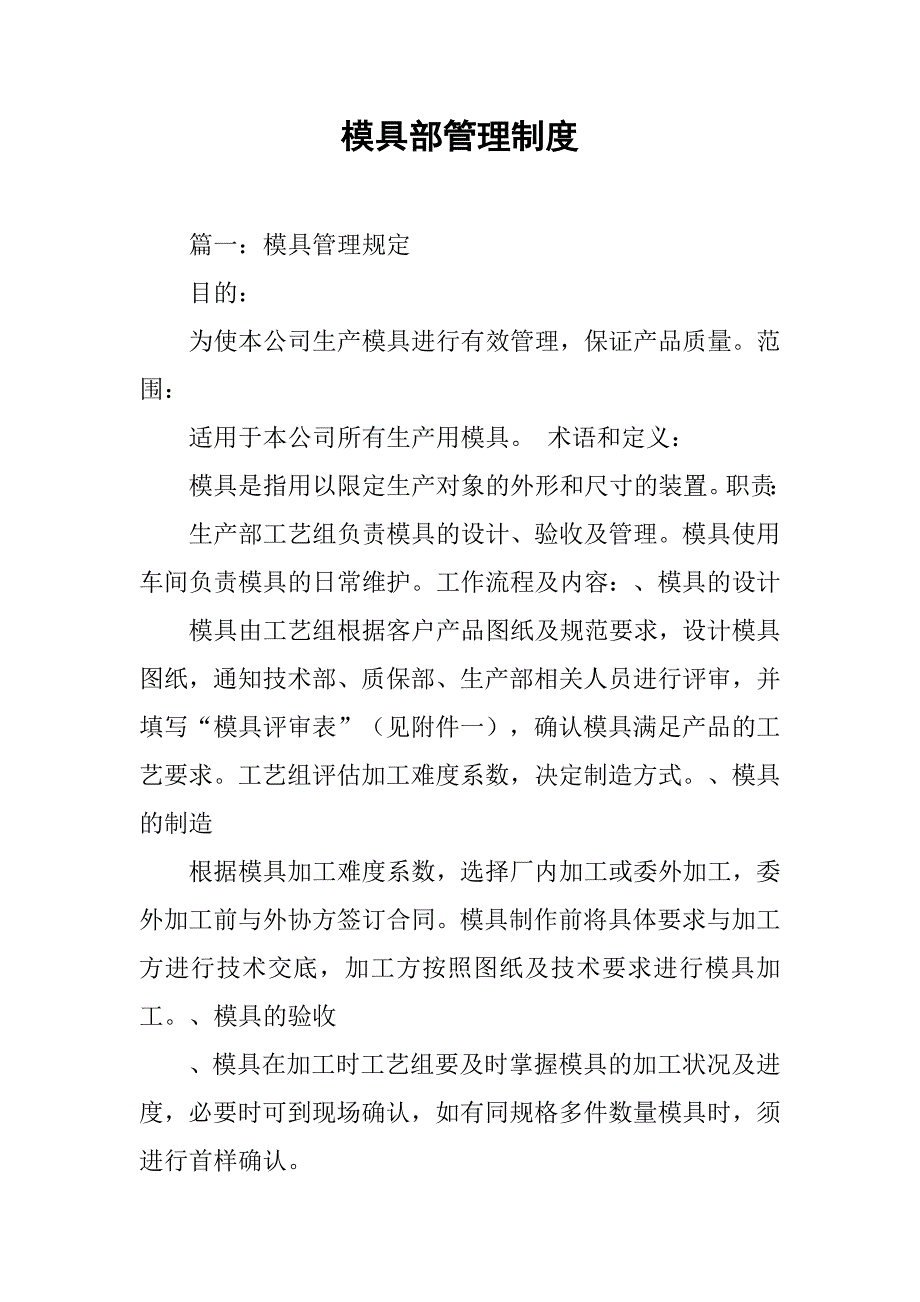 模具部管理制度
篇一：模具管理规定
目的：
为使本公司生产模具进行有效管理，保证产品质量。范
围：
适用于本公司所有生产用模具。 术语和定义：
模具是指用以限定生产对象的外形和尺寸的装置。职责：
生产部工艺组负责模具的设计、验收及管理。模具使用
车间负责模具的日常维护。工作流程及内容：、模具的设计
模具由工艺组根据客户产品图纸及规范要求，设计模具
图纸，通知技术部、质保部、生产部相关人员进行评审，并
填写“模具评审表”（见附件一），确认模具满足产品的工
艺要求。工艺组评估加工难度系数，决定制造方式。、模具
的制造
根据模具加工难度系数，选择厂内加工或委外加工，委
外加工前与外协方签订合同。模具制作前将具体要求与加工
方进行技术交底，加工方按照图纸及技术要求进行模具加
工。、模具的验收
、模具在加工时工艺组要及时掌握模具的加工状况及进
度，必要时可到现场确认，如有同规格多件数量模具时，须
进行首样确认。